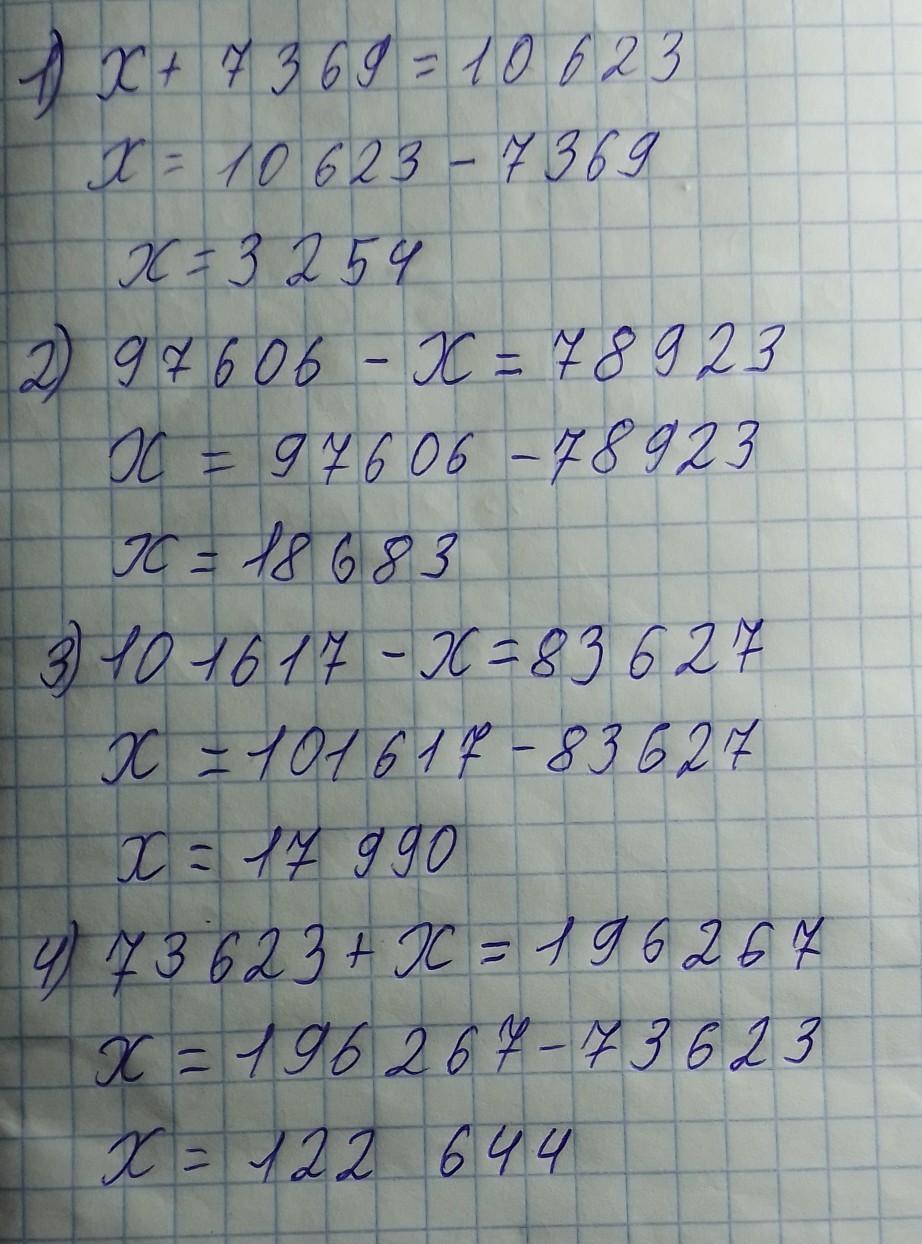 1) x + 7369 = 10 623
x = 10 623 - 7369
x = 3254
2) 97606 - x = 78923
x = 97606 - 78923
x = 18683
3) 101617 - x = 83627
x = 101617 - 83627
x = 17 990
4) 73623 + x = 196267
x = 196267 - 73623
x = 122 644